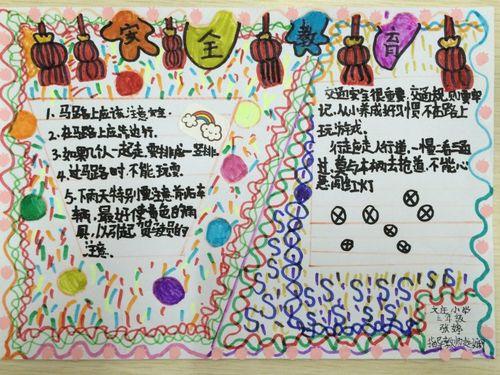 安全教育
1、马路上应该注意安全.
2、在马路上应靠边行.
3、如果几人一起走,要排成一竖排.
4、过马路时,不能玩耍.
5、下雨天特别要注意前后车
辆,最好使黄色的雨
具,以引起驾驶员的
注意.
交通安全很重要,交通规则要牢
记,从小养成好习惯,不在路上
玩游戏.
行走应走人行道,一慢二看三通
过,莫与车辆去抢道,不能心
急闯红灯
S S S S S S S S
文庄小学
三年级
张婷